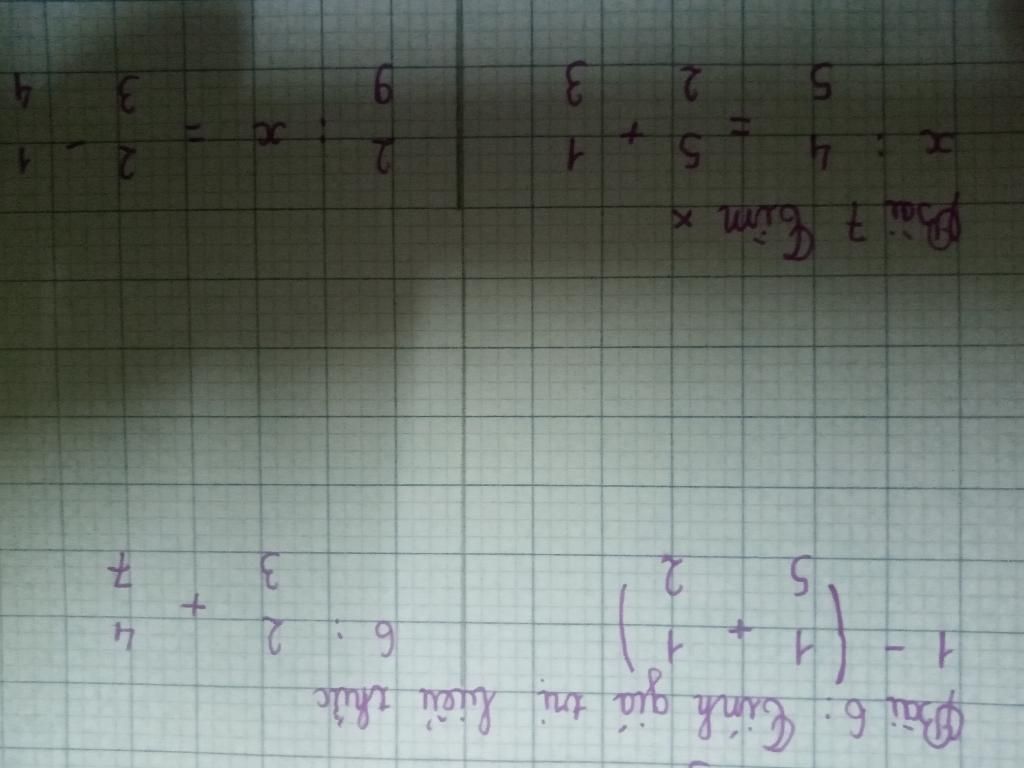 Bài 6: Tính giá trị biểu thức
1 - ( 1/5 + 1/2 ) 6 : 2/3 + 4/7
Bài 7 Tìm x
x : 4/5 = 5/2 + 1/3 2/9 : x = 2/3 - 1/4